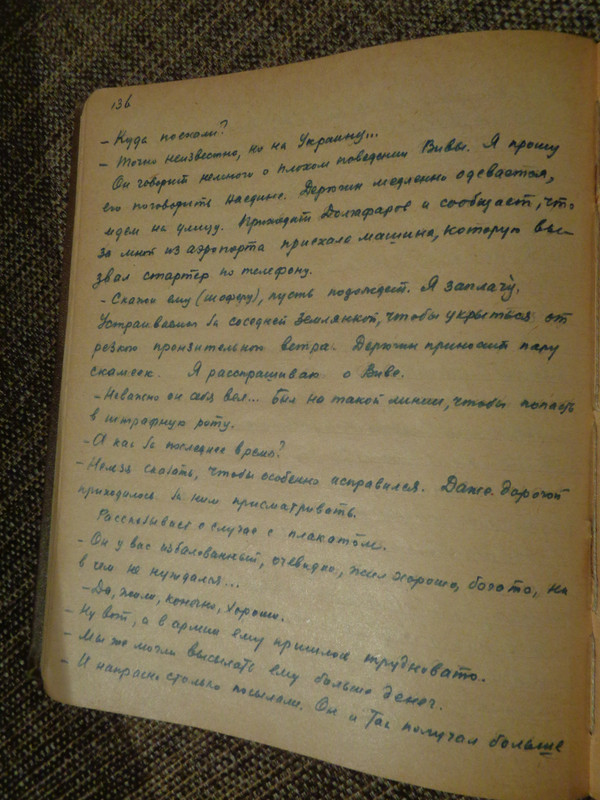 136
- Куда поехали?
- Точно неизвестно, но на Украину...
Он говорит немного о плохом поведении Вивы. Я прошу
его поговорить наедине. Дерюгин медленно одевается,
идем на улицу. Приходит Долгафаров и сообщает, что
за мной из аэропорта приехала машина, которую вы-
звал стартер по телефону.
- Скажи ему (шоферу), пусть подождет. Я заплачу.
Устраиваемся за соседней землянкой, чтобы укрыться от
резкого пронзительного ветра. Дерюгин приносит пару
скамеек. Я расспрашиваю о Виве.
- Неважно он себя вел... Был на такой линии, чтобы попасть
в штрафную роту.
- А как за последнее время?
- Нельзя сказать, чтобы особенно исправился. Даже дорогой
приходилось за ним присматривать.
Рассказывает о случае с плакатом.
- Он у вас избалованный, очевидно, жил хорошо, богато, ни
в чем не нуждался...
- Да, жили, конечно, хорошо.
- Ну вот, а в армии ему пришлось трудновато.
- Мы же могли высылать ему больше денег.
- И напрасно столько посылали. Он и так получал больше